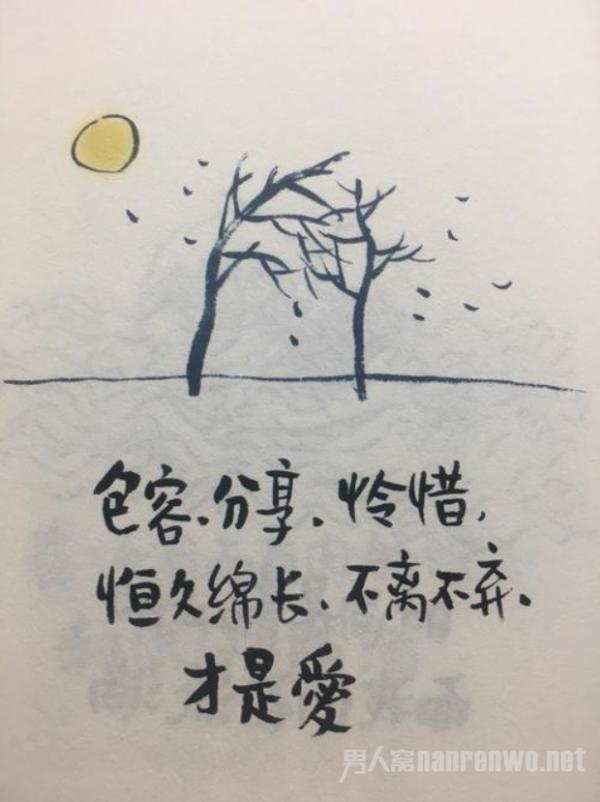 包容、分享、怜惜，
恒久绵长、不离不弃。
才是愛
男人窝nanrenwo.net